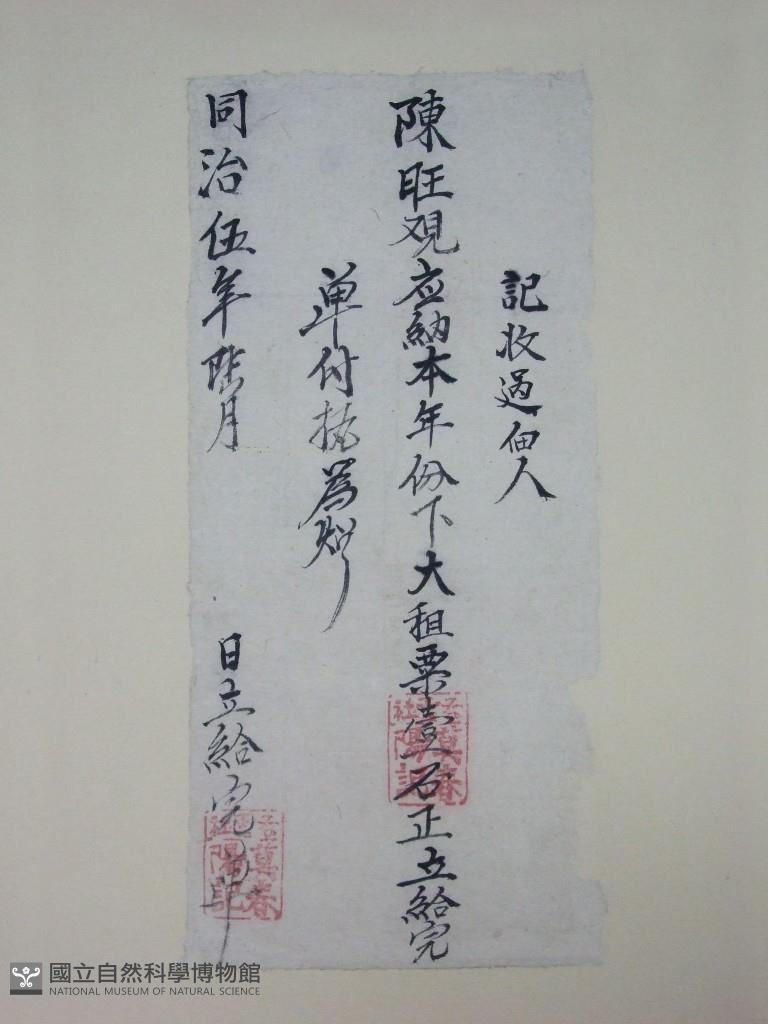 記收過佃人
陳旺观应納本年份下大租粟壹石正立給完
单付执為炤
同治伍年陸月 日立給完单
萬春
陽記
國立自然科學博物館
NATIONAL MUSEUM OF NATURAL SCIENCE